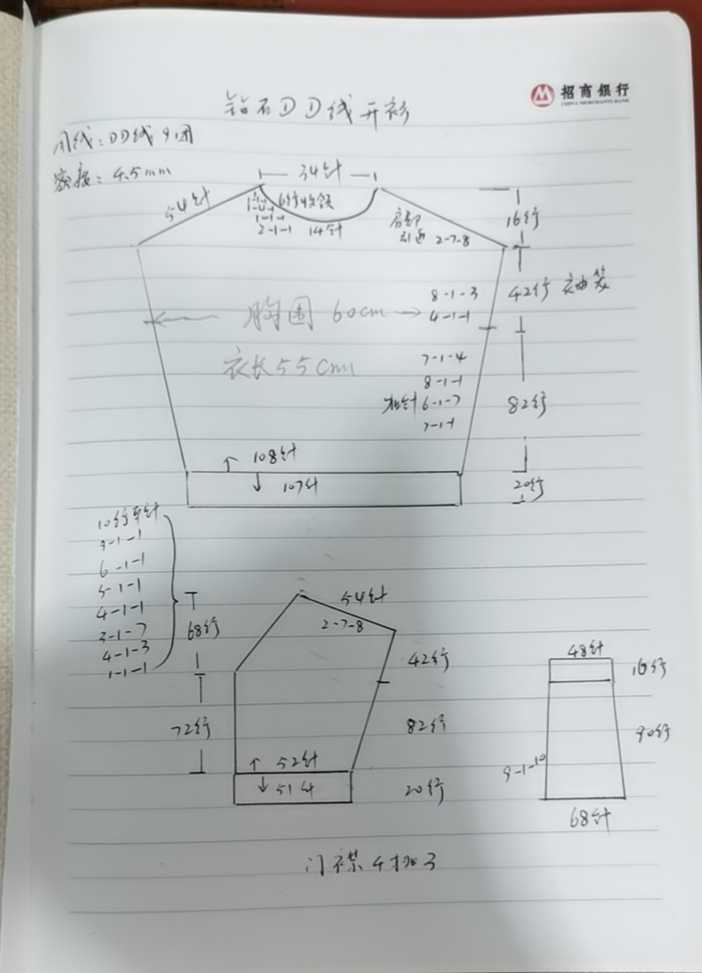 招商银行
CHINA MERCHANTS BANK
钻石DD线开衫
用线:DD线9团
密度:4.5mm
34针
54针
16行
14针
2-1-1
肩部
引返 2-7-8
8-1-3
4-1-1
42行 衣袖笼
胸围 60cm
衣长55cm
7-1-4
8-1-1
加针 6-1-7
7-1-1
82行
↑ 108针
↓ 107针
20行
10行平针
6-1-1
5-1-1
4-1-1
3-1-7
4-1-3
1-1-1
68行
72行
54针
2-7-8
42行
82行
↑ 52针
↓ 51针
20行
48针
16行
90行
9-1-10
68针
门襟4扣子